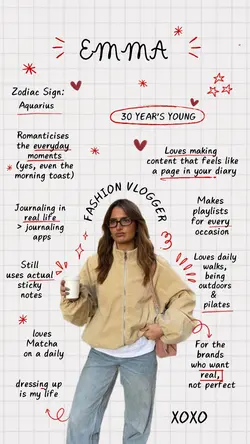 EMMA
Zodiac Sign:
Aquarius
30 YEAR'S YOUNG
Romanticises
the everyday
moments
(yes, even the
morning toast)
Loves making
content that feels like
a page in your diary
FASHION VLOGGER
Journaling in
real life
> journaling
apps
Makes
playlists
for every
occasion
Still
uses actual
sticky
notes
Loves daily
walks,
being
outdoors
&
pilates
loves
Matcha
on a daily
For the
brands
who want
real,
not perfect
dressing up
is my life
XOXO